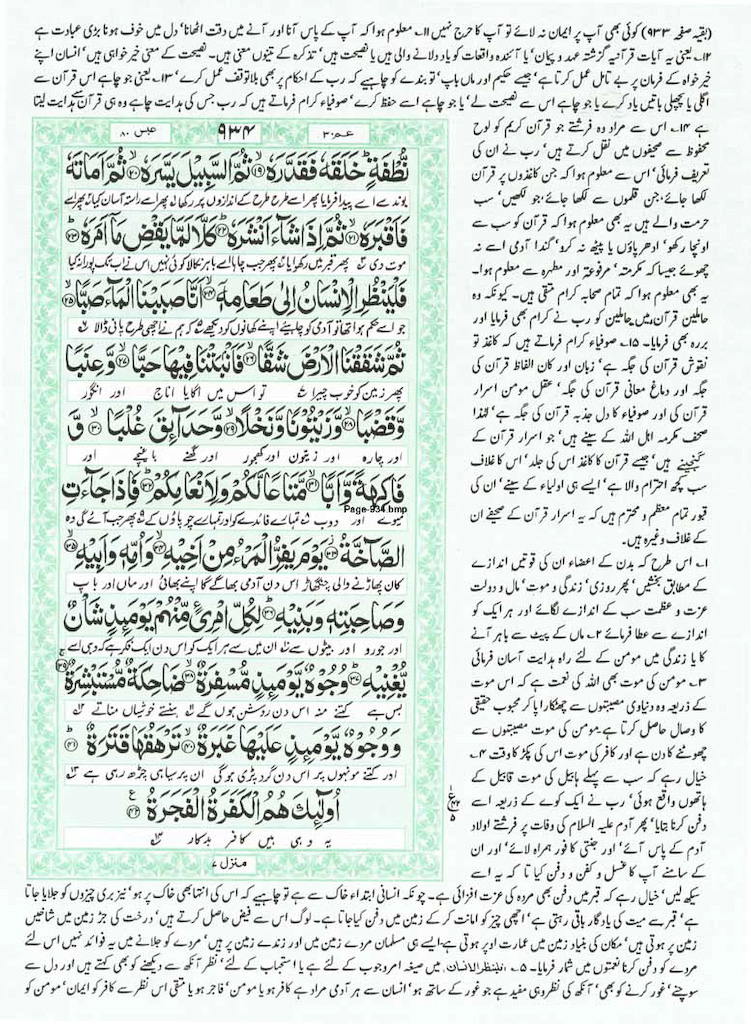 (بقیہ صفحہ ۹۳۳) کوئی بھی آپ پر ایمان نہ لائے تو آپ کا حرج نہیں ۱۱۔ معلوم ہوا کہ آپ کے پاس آنا اور آنے میں دقت اٹھانا' دل میں خوف ہونا بڑی عبادت ہے
۱۲۔ یعنی یہ آیات قرآنیہ گزشتہ عہد و پیمان' یا آئندہ واقعات کو یاد دلانے والی ہیں یا نصیحت ہیں' تذکرہ کے تینوں معنی ہیں۔ نصیحت کے معنی خیر خواہی ہیں' انسان اپنے
خیر خواہ کے فرمان پر بے تامل عمل کرتا ہے' جیسے حکیم اور ماں باپ' تو بندے کو چاہیے کہ رب کے احکام پر بھی بلا توقف عمل کرے' ۱۳۔ یعنی جو چاہے اس قرآن سے
اگلی یا پچھلی باتیں یاد کرے یا جو چاہے اس سے نصیحت لے' یا جو چاہے اسے حفظ کرے' صوفیاء کرام فرماتے ہیں کہ رب جس کی ہدایت چاہے وہ ہی قرآن سے ہدایت لیتا
ہے ۱۴۔ اس سے مراد وہ فرشتے جو قرآن کریم کو لوح
محفوظ سے صحیفوں میں نقل کرتے ہیں' رب نے ان کی
تعریف فرمائی' اس سے معلوم ہوا کہ جن کاغذوں پر قرآن
لکھا جائے' جن قلموں سے لکھا جائے' جو لکھیں' سب
حرمت والے ہیں یہ بھی معلوم ہوا کہ قرآن کو سب سے
اونچا رکھو' ادھر پاؤں یا پیٹھ نہ کرو' گندا آدمی اسے نہ
چھوئے جیسا کہ مکرمتہ' مرفوعتہ اور مطہرہ سے معلوم ہوا۔
یہ بھی معلوم ہوا کہ تمام صحابہ کرام متقی ہیں۔ کیونکہ وہ
حاملین قرآن ہیں میں حاملین کو رب نے کرام بھی فرمایا اور
بررہ بھی فرمایا۔ ۱۵۔ صوفیاء کرام فرماتے ہیں کہ کاغذ تو
نقوش قرآن کی جگہ ہے' زبان اور کان الفاظ قرآن کی
جگہ اور دماغ معانی قرآن کی جگہ' عقل مومن اسرار
قرآن کی اور صوفیاء کا دل جذبہ قرآن کی جگہ ہے' لہٰذا
صحف مکرمہ اہل اللہ کے سینے ہیں' جو اسرار قرآن کے
گنجینے ہیں' جیسے قرآن کا کاغذ اس کی جلد' اس کا غلاف
سب کچھ احترام والا ہے' ایسے ہی اولیاء کے سینے' ان کی
قبور تمام معظم و محترم ہیں کہ یہ اسرار قرآن کے صحیفے ان
کے غلاف وغیرہ ہیں۔
۱۔ اس طرح کہ بدن کے اعضاء ان کی قوتیں اندازے
کے مطابق بخشیں' پھر روزی' زندگی و موت' مال و دولت
عزت و عظمت سب کے اندازے لگائے اور ہر ایک کو
اندازے سے عطا فرمائے ۲۔ ماں کے پیٹ سے باہر آنے
کا یا زندگی میں مومن کے لئے راہ ہدایت آسان فرمائی
۳۔ مومن کی موت بھی اللہ کی نعمت ہے کہ اس موت
کے ذریعہ وہ دنیاوی مصیبتوں سے چھٹکارا پا کر محبوب حقیقی
کا وصال حاصل کرتا ہے۔ مومن کی موت مصیبتوں سے
چھوٹنے کا دن ہے اور کافر کی موت اس کی پکڑ کا وقت ۴۔
خیال رہے کہ سب سے پہلے ہابیل کی موت قابیل کے
ہاتھوں واقع ہوئی' رب نے ایک کوے کے ذریعہ اسے
دفن کرنا بتایا' پھر آدم علیہ السلام کی وفات پر فرشتے اولاد
آدم کے پاس آئے' اور جنتی کافور ہمراہ لائے' اور ان
کے سامنے آپ کا غسل و کفن و دفن کیا تا کہ یہ اسے
عبس ۸۰ ۹۳۴ عم ۳۰
نُّطْفَةٍ ؕ خَلَقَهٗ فَقَدَّرَهٗ ۙ﴿۱۹﴾ ثُمَّ السَّبِيْلَ يَسَّرَهٗ ۙ﴿۲۰﴾ ثُمَّ اَمَاتَهٗ
بوند سے اسے پیدا فرمایا پھر اسے طرح طرح کے اندازوں پر رکھا پھر اسے راستہ آسان کیا پھر اسے
فَاَقْبَرَهٗ ۙ﴿۲۱﴾ ثُمَّ اِذَا شَآءَ اَنْشَرَهٗ ؕ﴿۲۲﴾ كَلَّا لَمَّا يَقْضِ مَاۤ اَمَرَهٗ ؕ﴿۲۳﴾
موت دی پھر قبر میں رکھوایا پھر جب چاہا اسے باہر نکالا کوئی نہیں اس نے اب تک پورا نہ کیا
فَلْيَنْظُرِ الْاِنْسَانُ اِلٰى طَعَامِهٖۤ ۙ﴿۲۴﴾ اَنَّا صَبَبْنَا الْمَآءَ صَبًّا ۙ﴿۲۵﴾
جو اسے حکم ہوا تھا تو آدمی کو چاہیے اپنے کھانوں کو دیکھے کہ ہم نے اچھی طرح پانی ڈالا
ثُمَّ شَقَقْنَا الْاَرْضَ شَقًّا ۙ﴿۲۶﴾ فَاَنْۢبَتْنَا فِيْهَا حَبًّا ۙ﴿۲۷﴾ وَّعِنَبًا
پھر زمین کو خوب چیرا تو اس میں اگایا اناج اور انگور
وَّقَضْبًا ۙ﴿۲۸﴾ وَّزَيْتُوْنًا وَّنَخْلًا ۙ﴿۲۹﴾ وَّحَدَآئِقَ غُلْبًا ۙ﴿۳۰﴾ وَّ
اور چارہ اور زیتون اور کھجور اور گھنے باغیچے اور
فَاكِهَةً وَّاَبًّا ۙ﴿۳۱﴾ مَّتَاعًا لَّكُمْ وَلِاَنْعَامِكُمْ ؕ﴿۳۲﴾ فَاِذَا جَآءَتِ
Page-934.bmp
میوے اور دوب تمہارے فائدے کو اور تمہارے چوپاؤں کے پھر جب آئے گی وہ
الصَّآخَّةُ ۙ﴿۳۳﴾ يَوْمَ يَفِرُّ الْمَرْءُ مِنْ اَخِيْهِ ۙ﴿۳۴﴾ وَاُمِّهٖ وَاَبِيْهِ ۙ﴿۳۵﴾
کان پھاڑنے والی چنگھاڑ اس دن آدمی بھاگے گا اپنے بھائی اور ماں اور باپ
وَصَاحِبَتِهٖ وَبَنِيْهِ ؕ﴿۳۶﴾ لِكُلِّ امْرِئٍ مِّنْهُمْ يَوْمَئِذٍ شَاْنٌ
اور جورو اور بیٹوں سے ان میں سے ہر ایک کو اس دن ایک فکر ہے کہ وہی اسے
يُّغْنِيْهِ ؕ﴿۳۷﴾ وُجُوْهٌ يَّوْمَئِذٍ مُّسْفِرَةٌ ۙ﴿۳۸﴾ ضَاحِكَةٌ مُّسْتَبْشِرَةٌ ۚ﴿۳۹﴾
بس ہے کتنے منہ اس دن روشن ہوں گے ہنستے خوشیاں مناتے
وَوُجُوْهٌ يَّوْمَئِذٍ عَلَيْهَا غَبَرَةٌ ۙ﴿۴۰﴾ تَرْهَقُهَا قَتَرَةٌ ؕ﴿۴۱﴾
اور کتنے مونہوں پر اس دن گرد پڑی ہوگی ان پر سیاہی چڑھ رہی ہے
اُولٰٓئِكَ هُمُ الْكَفَرَةُ الْفَجَرَةُ ﴿۴۲﴾
یہ وہی ہیں کافر بدکار
منزل ۷
سیکھ لیں' خیال رہے کہ قبر میں دفن بھی مردہ کی عزت افزائی ہے۔ چونکہ انسانی ابتداء خاک سے ہے تو چاہیے کہ اس کی انتہا بھی خاک پر ہو' نیز بری چیزوں کو جلایا جاتا
ہے' قبر سے میت کی یادگار باقی رہتی ہے' اچھی چیز کو امانت کر کے زمین میں دفن کیا جاتا ہے۔ لوگ اس سے فیض حاصل کرتے ہیں' درخت کی جڑ زمین میں شاخیں
زمین پر ہوتی ہیں' مکان کی بنیاد زمین میں عمارت اوپر ہوتی ہے ایسے ہی مسلمان مردے زمین میں اور زندے زمین پر ہیں' مردے کو جلانے میں یہ فوائد نہیں اس لئے
مردے کو دفن کرنا نعمتوں میں شمار فرمایا۔ ۵۔ فلینظر الانسان' میں صیغہ امر وجوب کے لئے ہے یا استحباب کے لئے' نظر آنکھ سے دیکھنے کو بھی کہتے ہیں اور دل سے
سوچنے' غور کرنے کو بھی' آنکھ کی نظر وہی مفید ہے جو غور کے ساتھ ہو' انسان سے ہر آدمی مراد ہے کافر ہو یا مومن' فاجر ہو یا متقی اس نظر سے کافر کو ایمان' مومن کو